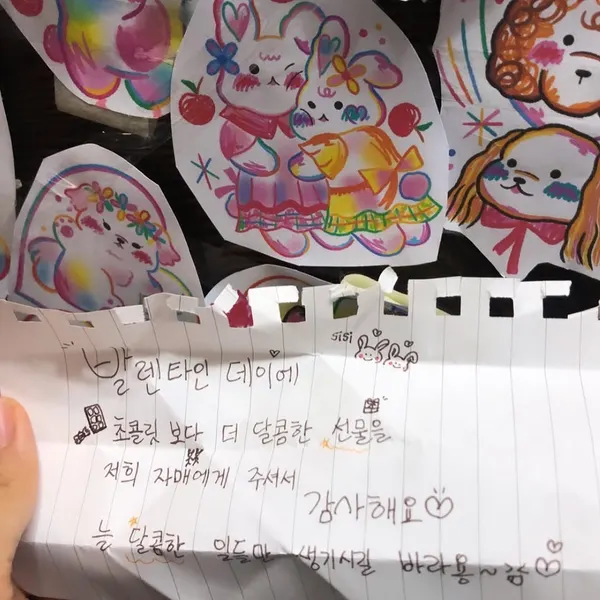 sisi
발렌타인 데이에
초콜릿 보다 더 달콤한 선물을
저희 자매에게 주셔서
감사해요
늘 달콤한 일들만 생기시길 바라용~